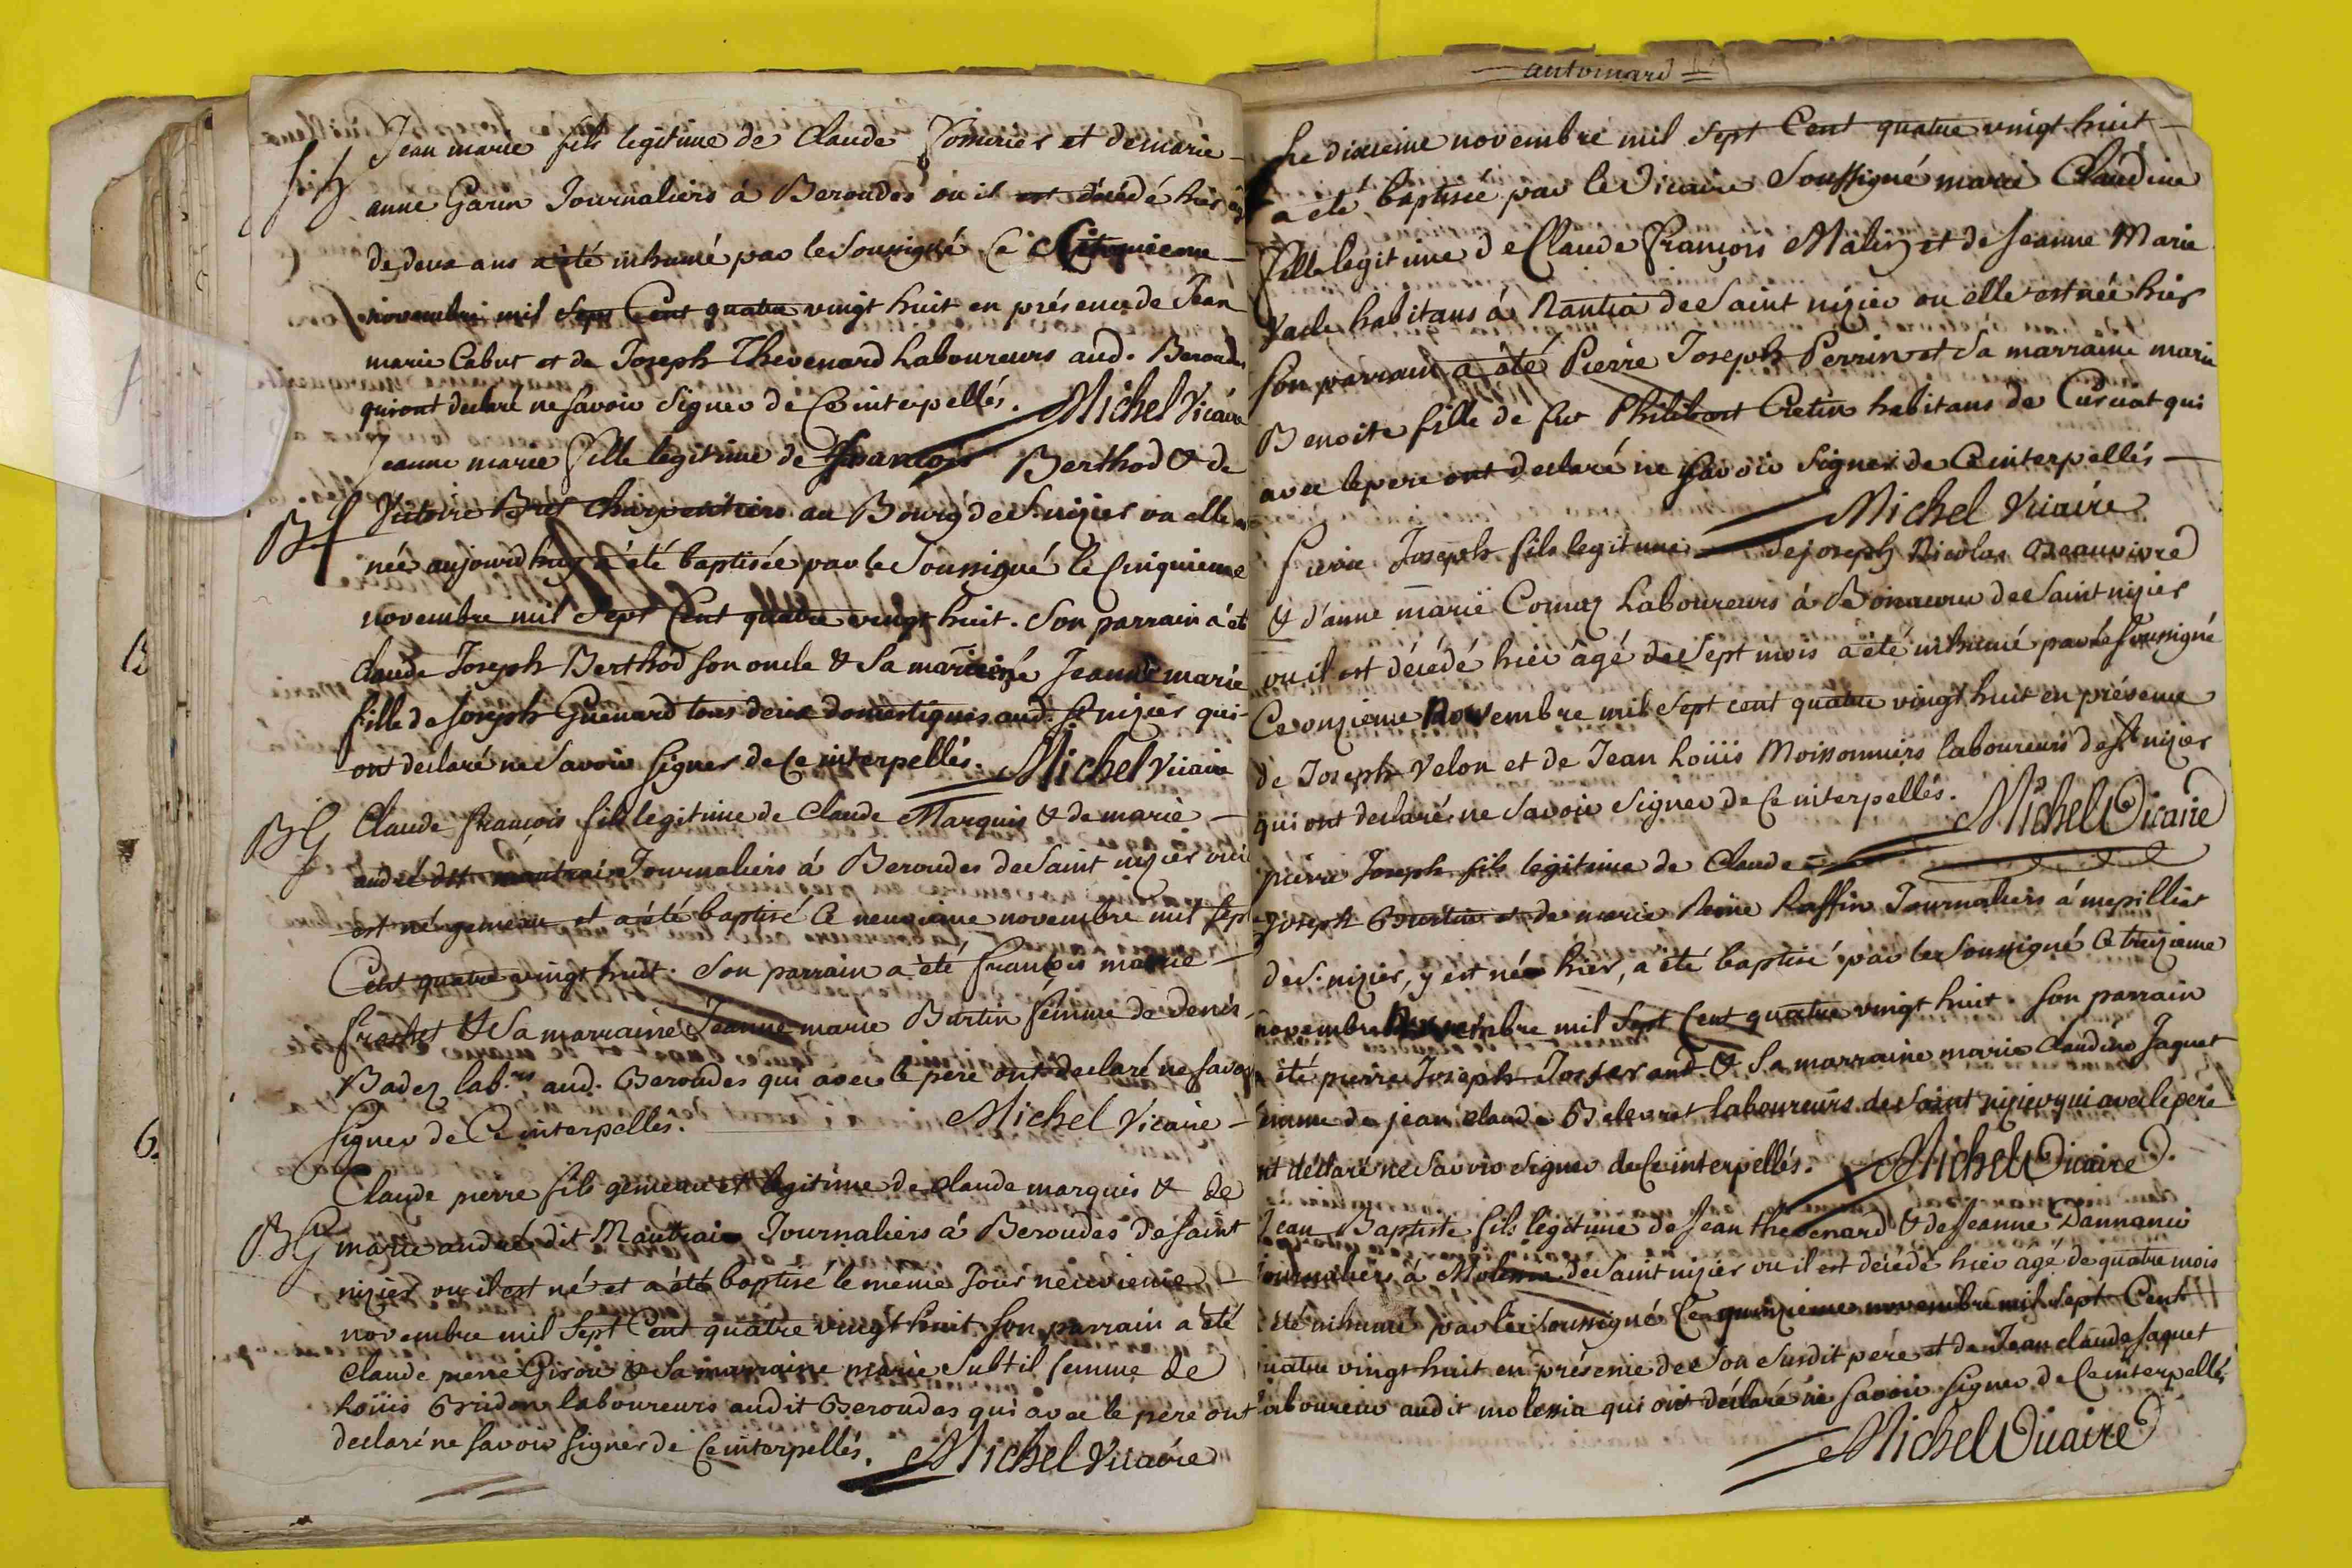 Jean marie fils legitime de Claude et de marie
anne Garin Journaliers à Beroudes ou il est décédé hier
de deux ans a été inhumé par le soussigné ce Cinquieme
novembre mil sept Cent quatre vingt huit en présence de Jean
marie Cabut et de Joseph Thevenard Laboureurs aud. Beroudes
qui ont declaré ne savoir signer de Ce interpellés. Michel Vicaire
Jeanne marie fille legitime de francois Berthod & de
Victoire Charpentiers au Bourg de St. nizier ou elle
née aujourd huy a été baptisée par le soussigné le Cinquieme
novembre mil sept Cent quatre vingt huit. Son parrain a été
Claude Joseph Berthod son oncle & Sa marraine Jeanne marie
fille de Joseph Guenard tous deux domestiques aud. St nizier qui
ont declaré ne savoir signer de Ce interpellés. Michel Vicaire
Claude françois fils legitime de Claude Marquis & de marie
andré dit mantrai Journaliers à Beroudes de Saint nizier ou il
est né gemeau et a été baptisé Ce neuvieme novembre mil sept
Cent quatre vingt huit. Son parrain a été françois marie
frachet & Sa marraine Jeanne marie Burtin femme de denis
Badez lab.rs aud. Beroudes qui avec le pere ont declaré ne savoir
signer de Ce interpellés. Michel Vicaire
Claude pierre fils gemeau et legitime de claude marquis & de
marie andré dit Mantrai Journaliers à Beroudes de Saint
nizier ou il est né et a été baptisé le meme Jour neuvieme
novembre mil sept Cent quatre vingt huit son parrain a été
claude pierre Giroud & Sa marraine marie Subtil femme de
Loüis Gridon laboureurs audit Beroudes qui avec le pere ont
declaré ne savoir signer de Ce interpellés. Michel Vicaire
B
6
Le dixieme novembre mil sept Cent quatre vingt huit
a été baptisée par le Vicaire Soussigné marie Claudine
fille legitime de Claude François Malin et de Jeanne Marie
habitans à Nantia de Saint nizier ou elle est née hier
Son parrain a été Pierre Joseph Perrin et Sa marraine marie
Benoite fille de fut Philibert Cretin habitans de Curciat qui
avec le pere ont declaré ne savoir signer de Ce interpellés
Michel Vicaire
Pierre Joseph fils legitime de joseph Nicolas Beauvivre
& d'anne marie Comaz Laboureurs à de Saint nizier
ou il est décédé hier âgé de Sept mois a été inhumé par le soussigné
Ce onzieme Novembre mil sept cent quatre vingt huit en présence
de Joseph Velon et de Jean Loüis Moissonniers laboureurs de St nizier
qui ont declaré ne savoir signer de Ce interpellés. Michel Vicaire
pierre Joseph fils legitime de Claude
Joseph Burtin et de marie Reine Raffin Journaliers à mepilliat
de S. nizier, y est né hier, a été baptisé par le soussigné Ce treizieme
novembre mil sept Cent quatre vingt huit. Son parrain
été pierre Joseph Josserand & Sa marraine marie Claudine Jaquet
femme de jean claude Belevret laboureurs de Saint nizier qui avec le pere
ont déclaré ne savoir signer de Ce interpellés. Michel Vicaire
Jean Baptiste fils legitime de Jean thevenard & de Jeanne Dannanci
Journaliers à Molessia de Saint nizier ou il est décédé hier âgé de quatre mois
été inhumé par le soussigné Ce quinzieme novembre mil sept Cent
quatre vingt huit en présence de son susdit pere et de Jean claude Jaquet
laboureur audit molessia qui ont déclaré ne savoir signer de Ce interpellés
Michel Vicaire